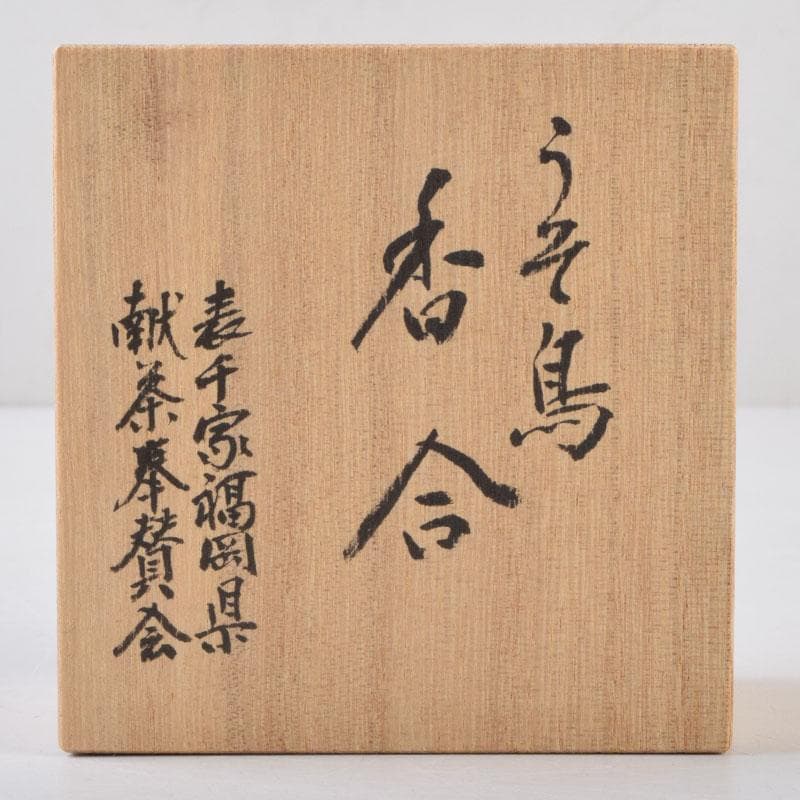 うそ鳥
香合
表千家福岡県
献茶奉賛会